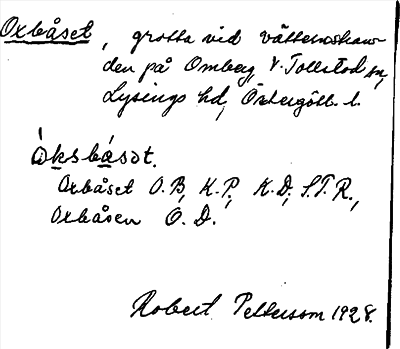 Oxbåset, grotta vid vätternstran-
den på Omberg, V. Tollstad sn,
Lysings hd, Östergötl. l.
òksbåsət.
Oxbåset O.B, K.P, K.D, S.T.R.,
Oxbåsen O.D.
Robert Pettersson 1928.